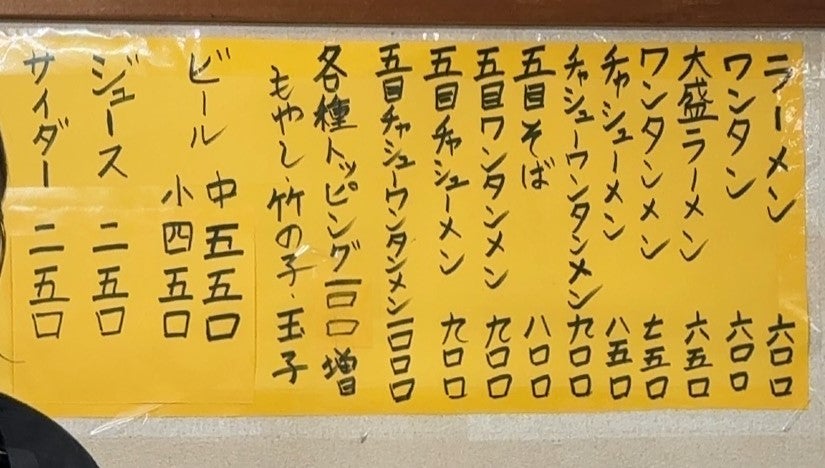 ラーメン 六〇〇
ワンタン 六〇〇
大盛ラーメン 六五〇
ワンタンメン 七五〇
チャシューメン 八五〇
チャシューワンタンメン 九〇〇
五目そば 八〇〇
五目ワンタンメン 九〇〇
五目チャシューメン 九〇〇
五目チャシューワンタンメン 一〇〇〇
各種トッピング一〇〇増
もやし・竹の子・玉子
ビール 中 五五〇
小 四五〇
ジュース 二五〇
サイダー 二五〇